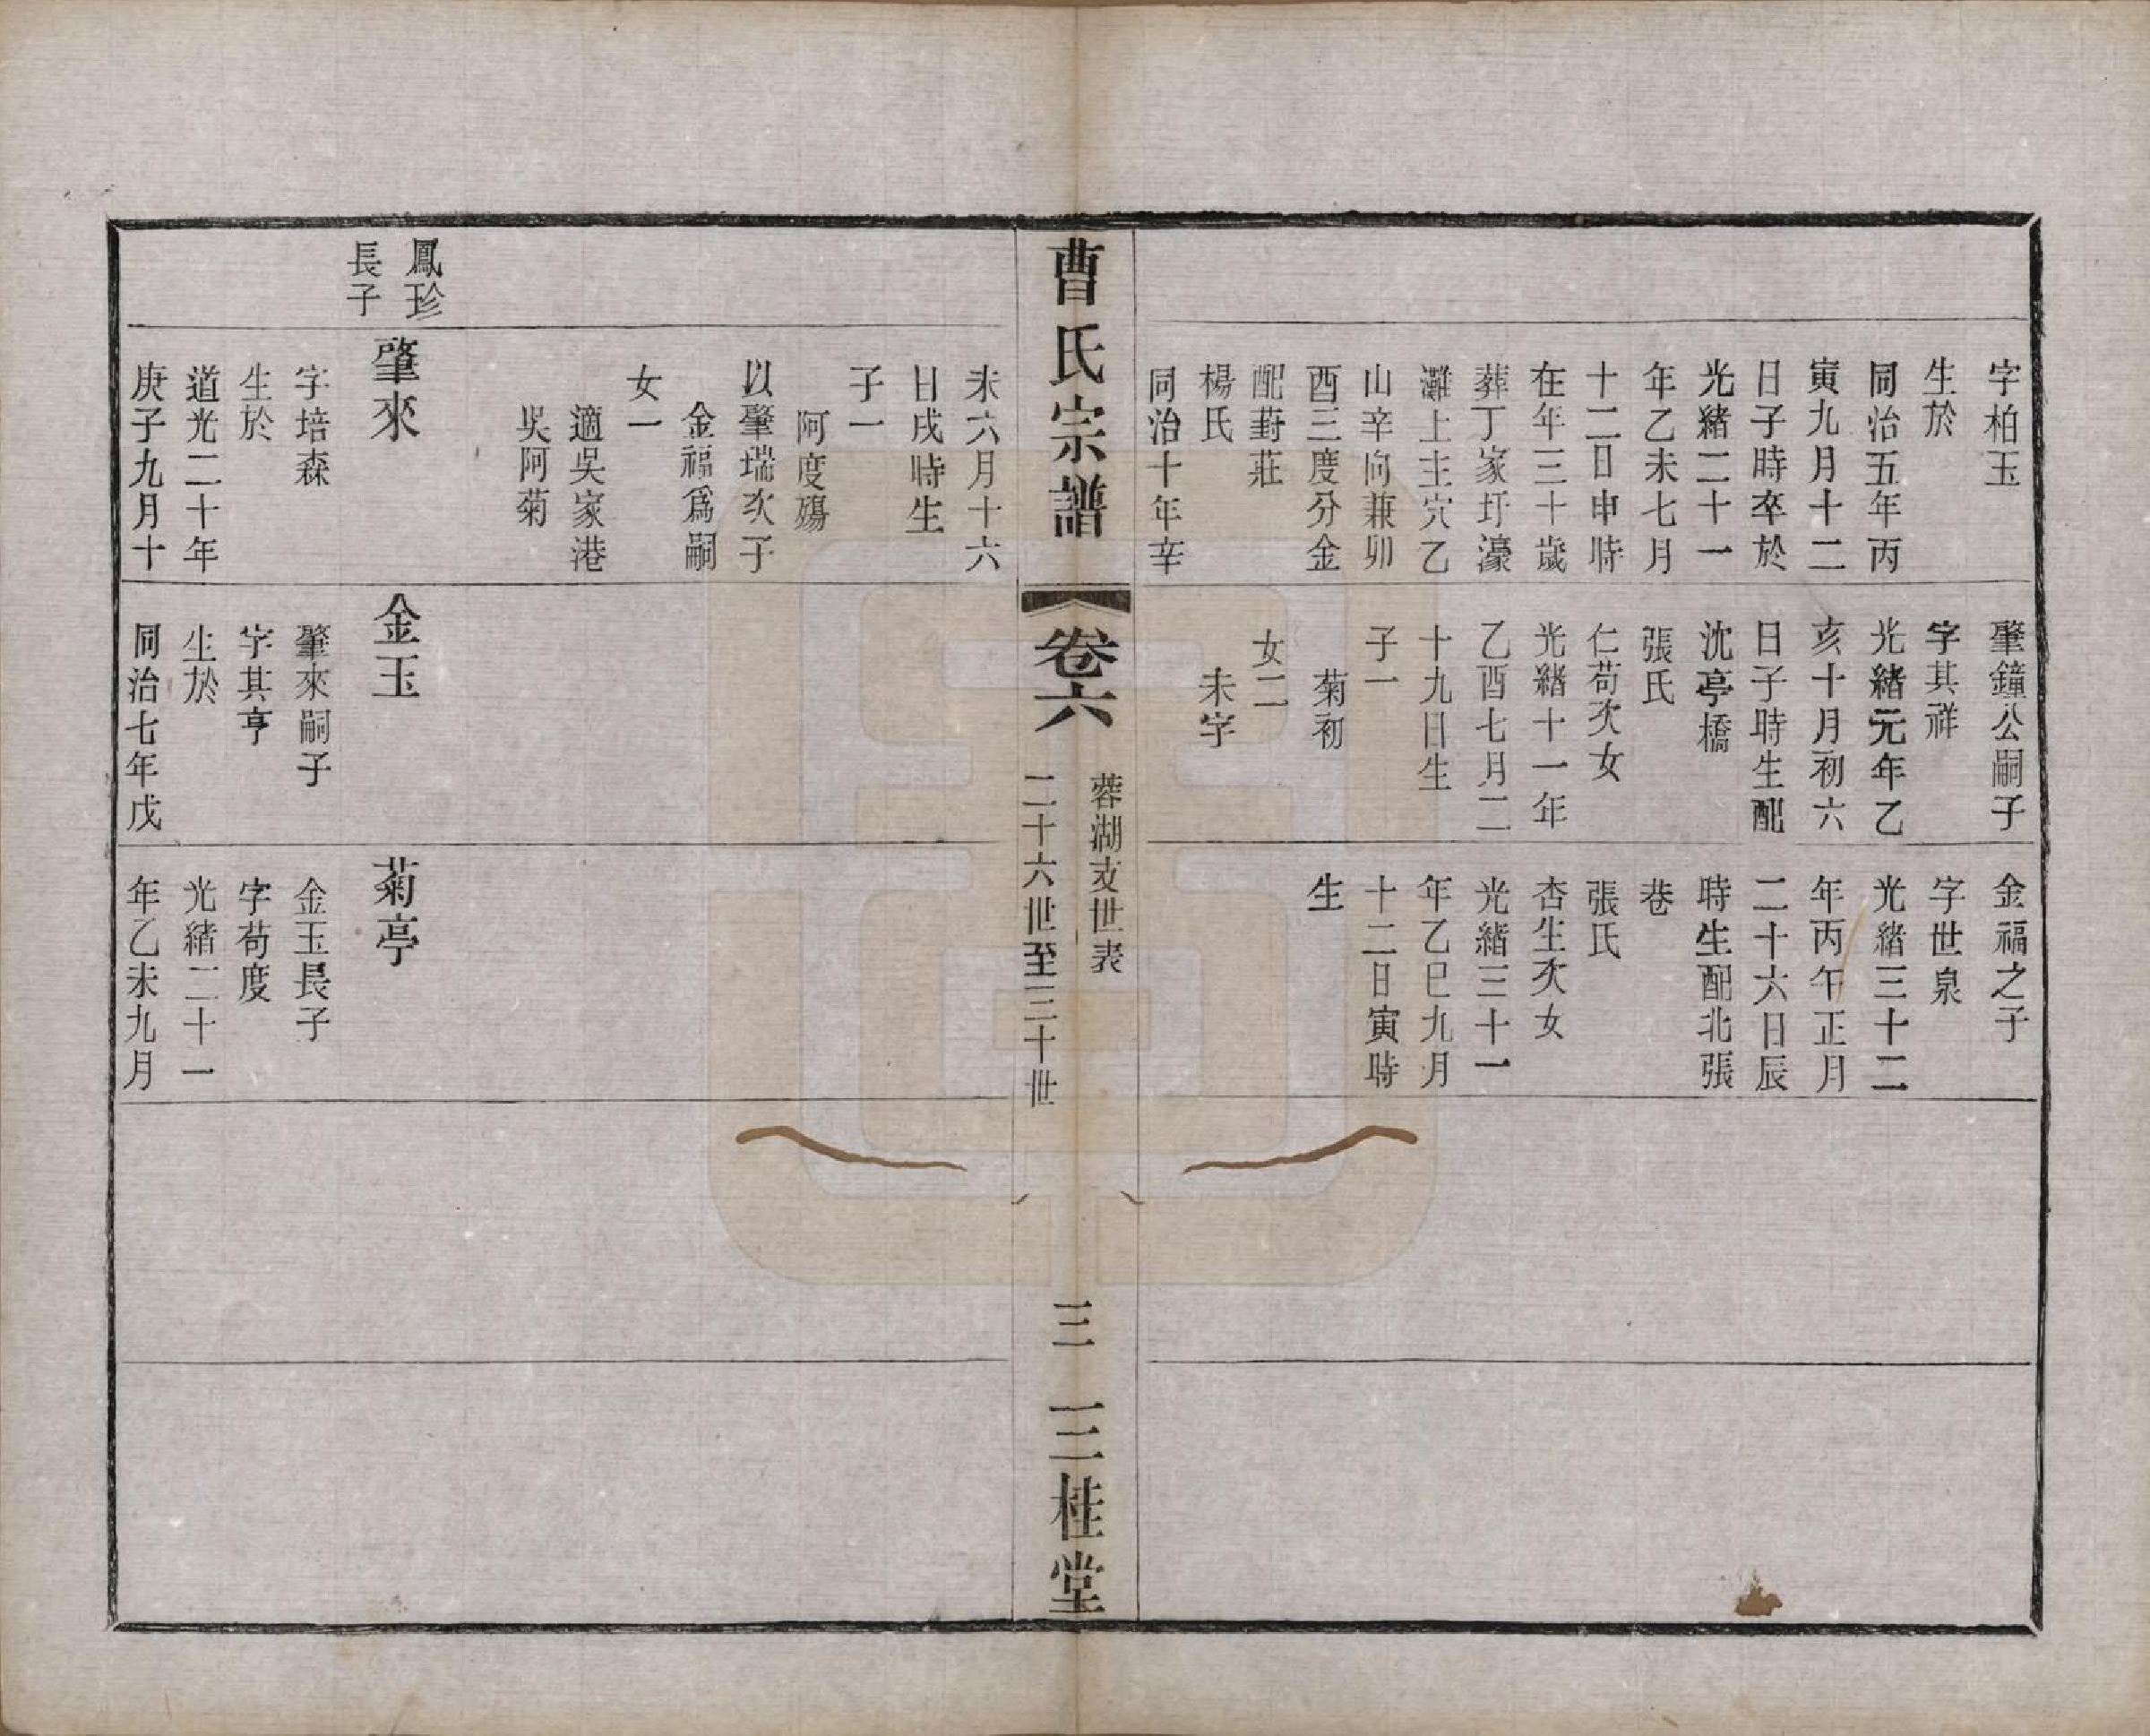 字柏玉
生於
同治五年丙
寅九月十二
日子時卒於
光緒二十一
年乙未七月
十二日申時
在年三十歲
葬丁家圩濠
灘上主穴乙
山辛向兼卯
酉三度分金
配葑莊
楊氏
同治十年辛
肇鐘公嗣子
字其祥
光緒元年乙
亥十月初六
日子時生配
沈亭橋
張氏
仁苟次女
光緒十一年
乙酉七月二
十九日生
子一
菊初
女二
未字
金福之子
字世泉
光緒三十二
年丙午正月
二十六日辰
時生配北張
巷
張氏
杏生次女
光緒三十一
年乙巳九月
十二日寅時
生
曹氏宗譜
卷六
蓉湖支世表
二十六世至三十世
三
三桂堂
未六月十六
日戌時生
子一
阿度殤
以肇瑞次子
金福爲嗣
女一
適吳家港
吳阿菊
鳳珍
長子
肇來
字培森
生於
道光二十年
庚子九月十
金玉
肇來嗣子
字其亨
生於
同治七年戊
菊亭
金玉長子
字苟度
光緒二十一
年乙未九月